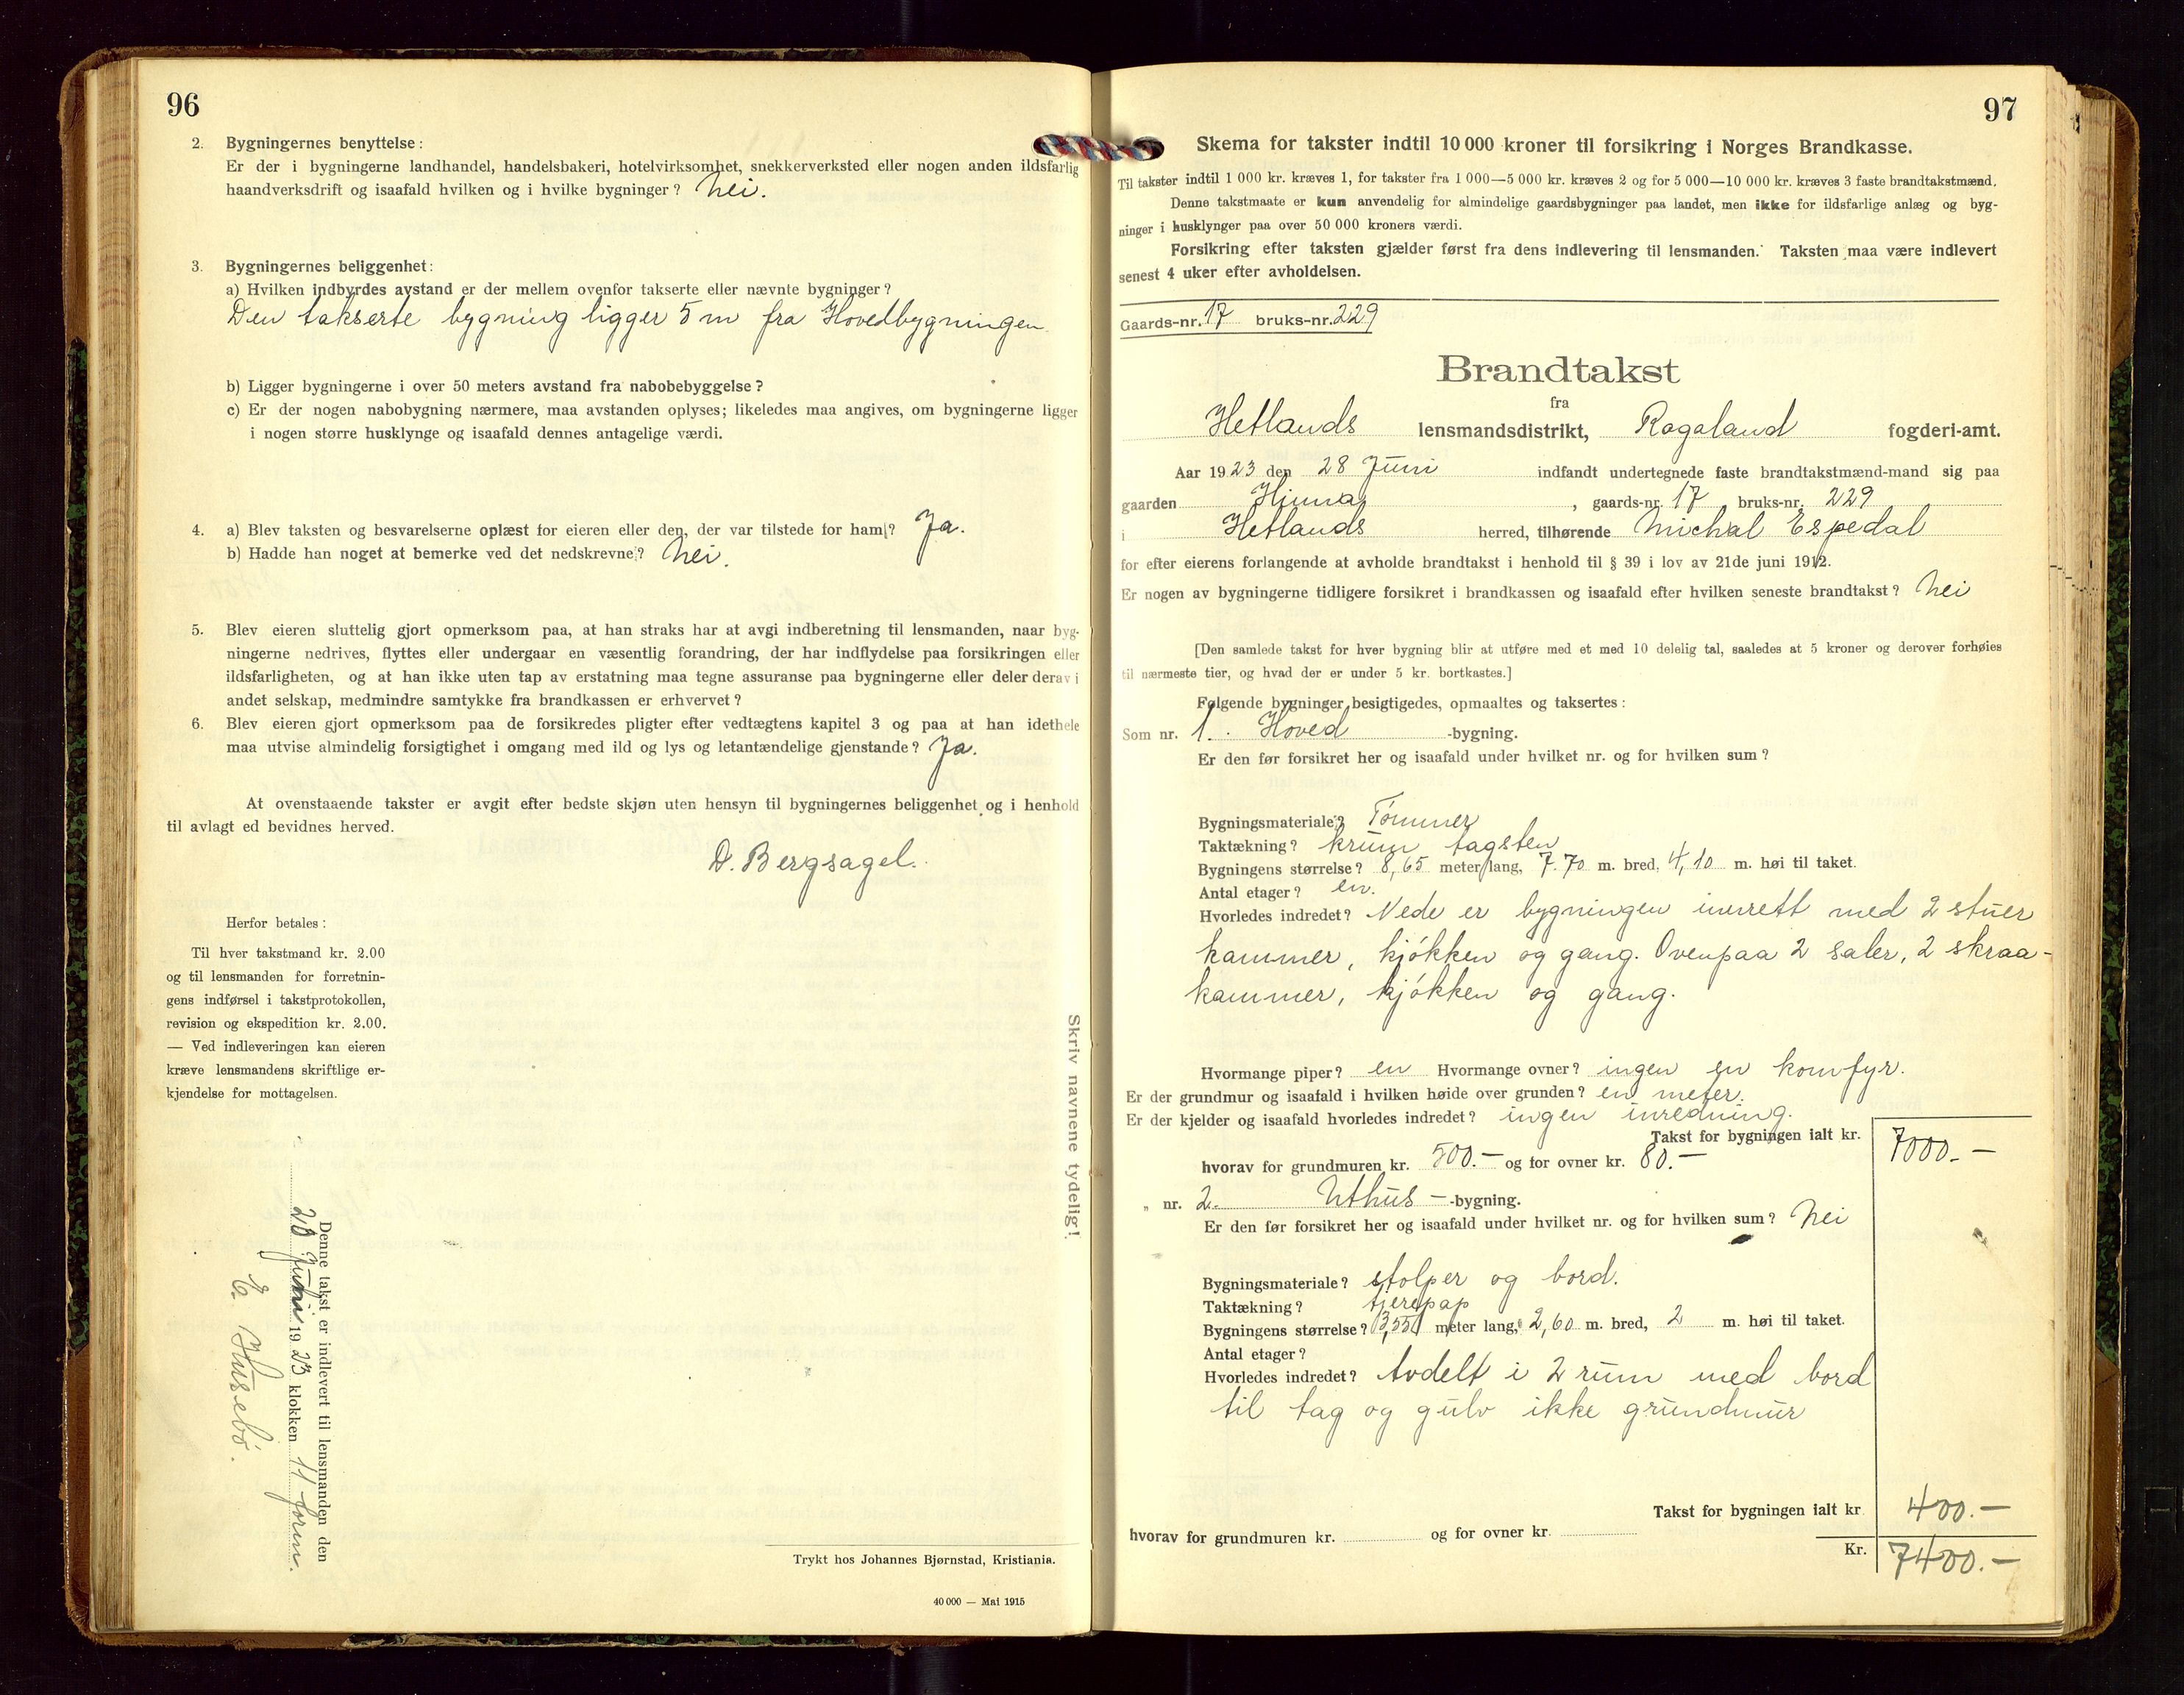 96
2. Bygningernes benyttelse:
Er der i bygningerne landhandel, handelsbakeri, hotelvirksomhet, snekkerverksted eller nogen anden ildsfarlig
haandverksdrift og isaafald hvilken og i hvilke bygninger? Nei.
3. Bygningernes beliggenhet:
a) Hvilken indbyrdes avstand er der mellem ovenfor takserte eller nævnte bygninger?
Den takserte bygning ligger 5 m fra Hovedbygningen
b) Ligger bygningerne i over 50 meters avstand fra nabobebyggelse?
c) Er der nogen nabobygning nærmere, maa avstanden oplyses; likeledes maa angives, om bygningerne ligger
i nogen større husklynge og isaafald dennes antagelige værdi.
4. a) Blev taksten og besvarelserne oplæst for eieren eller den, der var tilstede for ham? Ja.
b) Hadde han noget at bemerke ved det nedskrevne? Nei.
5. Blev eieren sluttelig gjort opmerksom paa, at han straks har at avgi indberetning til lensmanden, naar byg-
ningerne nedrives, flyttes eller undergaar en væsentlig forandring, der har indflydelse paa forsikringen eller
ildsfarligheten, og at han ikke uten tap av erstatning maa tegne assuranse paa bygningerne eller deler derav i
andet selskap, medmindre samtykke fra brandkassen er erhvervet?
6. Blev eieren gjort opmerksom paa de forsikredes pligter efter vedtægtens kapitel 3 og paa at han idethele
maa utvise almindelig forsigtighet i omgang med ild og lys og letantændelige gjenstande? Ja.
At ovenstaaende takster er avgit efter bedste skjøn uten hensyn til bygningernes beliggenhet og i henhold
til avlagt ed bevidnes herved.
D. Bergsagel.
Herfor betales:
Til hver takstmand kr. 2.00
og til lensmanden for forretnin-
gens indførsel i takstprotokollen,
revision og ekspedition kr. 2.00.
— Ved indleveringen kan eieren
kræve lensmandens skriftlige er-
kjendelse for mottagelsen.
Denne takst er indlevert til lensmanden den
28 Juni 1923 klokken 11 form.
E. Husebö.
Skriv navnene tydelig!
Trykt hos Johannes Bjørnstad, Kristiania.
40 000 — Mai 1915
97
Skema for takster indtil 10 000 kroner til forsikring i Norges Brandkasse.
Til takster indtil 1 000 kr. kræves 1, for takster fra 1 000—5 000 kr. kræves 2 og for 5 000—10 000 kr. kræves 3 faste brandtakstmænd.
Denne takstmaate er kun anvendelig for almindelige gaardsbygninger paa landet, men ikke for ildsfarlige anlæg og byg-
ninger i husklynger paa over 50 000 kroners værdi.
Forsikring efter taksten gjælder først fra dens indlevering til lensmanden. Taksten maa være indlevert
senest 4 uker efter avholdelsen.
Gaards-nr. 17 bruks-nr. 229
Brandtakst
fra
Hetlands lensmandsdistrikt, Rogaland fogderi-amt.
Aar 1923 den 28 Juni indfandt undertegnede faste brandtakstmænd-mand sig paa
gaarden Hinna, gaards-nr. 17 bruks-nr. 229
i Hetlands herred, tilhørende Michal Espedal
for efter eierens forlangende at avholde brandtakst i henhold til § 39 i lov av 21de juni 1912.
Er nogen av bygningerne tidligere forsikret i brandkassen og isaafald efter hvilken seneste brandtakst? Nei
[Den samlede takst for hver bygning blir at utføre med et med 10 delelig tal, saaledes at 5 kroner og derover forhøies
til nærmeste tier, og hvad der er under 5 kr. bortkastes.]
Følgende bygninger besigtigedes, opmaaltes og taksertes:
Som nr. 1. Hoved -bygning.
Er den før forsikret her og isaafald under hvilket nr. og for hvilken sum?
Bygningsmateriale? Tömmer
Taktækning? krum tagsten
Bygningens størrelse? 8,65 meter lang, 7.70 m. bred, 4,10 m. høi til taket.
Antal etager? en.
Hvorledes indredet? Nede er bygningen inrett med 2 stuer
kammer, kjökken og gang. Ovenpaa 2 saler, 2 skraa-
kammer, kjökken og gang.
Hvormange piper? en Hvormange ovner? ingen en komfyr.
Er der grundmur og isaafald i hvilken høide over grunden? en meter.
Er der kjelder og isaafald hvorledes indredet? ingen inredning.
Takst for bygningen ialt kr. 7000.—
hvorav for grundmuren kr. 500.— og for ovner kr. 80.—
„ nr. 2. Uthus — -bygning.
Er den før forsikret her og isaafald under hvilket nr. og for hvilken sum? Nei
Bygningsmateriale? stolper og bord.
Taktækning? tjerepap
Bygningens størrelse? 3,55 meter lang, 2,60 m. bred, 2 m. høi til taket.
Antal etager?
Hvorledes indredet? Avdelt i 2 rum med bord
til tag og gulv ikke grundmur
Takst for bygningen ialt kr. 400.—
hvorav for grundmuren kr. og for ovner kr.
Kr. 7400.—